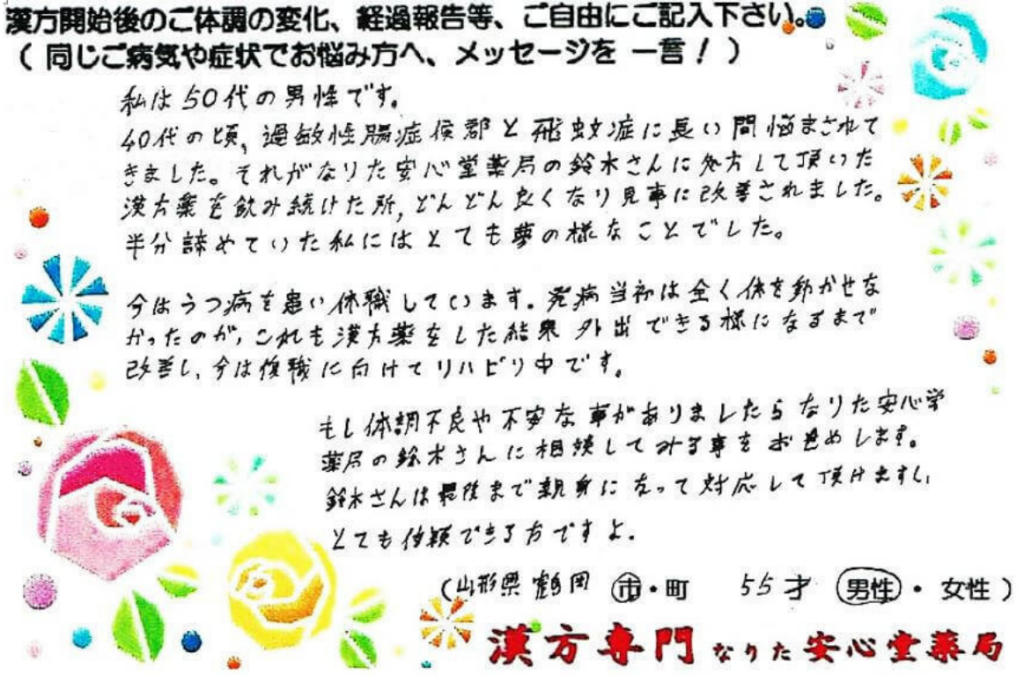 漢方開始後のご体調の変化、経過報告等、ご自由にご記入下さい。
( 同じご病気や症状でお悩み方へ、メッセージを 一言！ )
私は50代の男性です。
40代の頃, 過敏性腸症侯郡と飛蚊症に長い間悩まされて
きました。それがなりた安心堂薬局の鈴木さんに処方して頂いた
漢方薬を飲み続けた所, どんどん良くなり見事に改善されました。
半分諦めていた私にはとても夢の様なことでした。
今はうつ病を患い休職しています。発病当初は全く体を動かせな
かったのが, これも漢方薬をした結果 外出できる様になるまで
改善し、今は復職に向けてリハビリ中です。
もし体調不良や不安な事がありましたらなりた安心堂
薬局の鈴木さんに相談してみる事をお勧めします。
鈴木さんは最後まで親身になって対応して頂けますし、
とても信頼できる方ですよ。
(山形県 鶴岡 市・町 55才 男性・女性 )
漢方専門 なりた 安心堂薬局